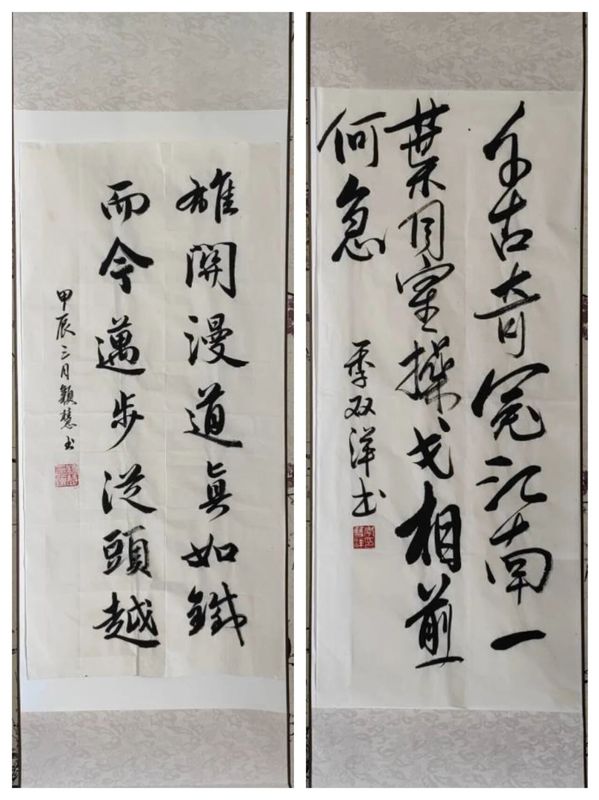 雄關漫道真如鐵
而今邁步從頭越
甲辰三月穎慧書
千古奇冤江南一
葉同室操戈相煎
何急
季双洋书